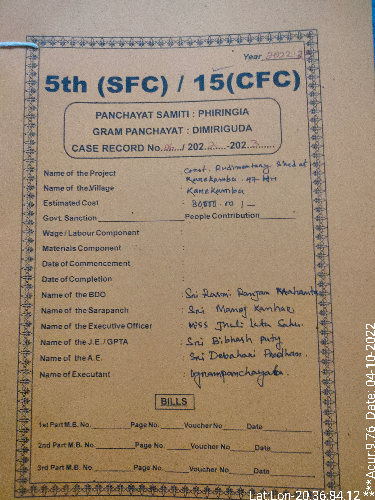 Year 2022-2
5th (SFC) / 15(CFC)
PANCHAYAT SAMITI : PHIRINGIA
GRAM PANCHAYAT : DIMIRIGUDA
CASE RECORD No. / 2022-2023
Name of the Project Const. Rudimentary Shed at
Name of the Village Kanekamba
Estimated Cost : 30,000.00/-
Govt. Sanction People Contribution
Wage / Labour Component :
Materials Component :
Date of Commencement
Date of Completion :
Name of the BDO : Sri Rasmi Ranjan Mahanta
Name of the Sarapanch : Sri Manoj Kanhar
Name of the Executive Officer : Miss Jhuli Lata Sahu.
Name of the J.E./ GPTA : Sri Bibhash Puty
Name of the A.E. Sri Debahari Pradhan.
Name of Executant : Igrampanchayata.
BILLS
1st Part M.B. No. Page No. Voucher No Date
2nd Part M.B. No. Page No. Voucher No Date
3rd Part M.B. No. Page No. Voucher No Date
Lat:Lon-20.36:84.12 ***Acur:9.76 Date: 04-10-2022